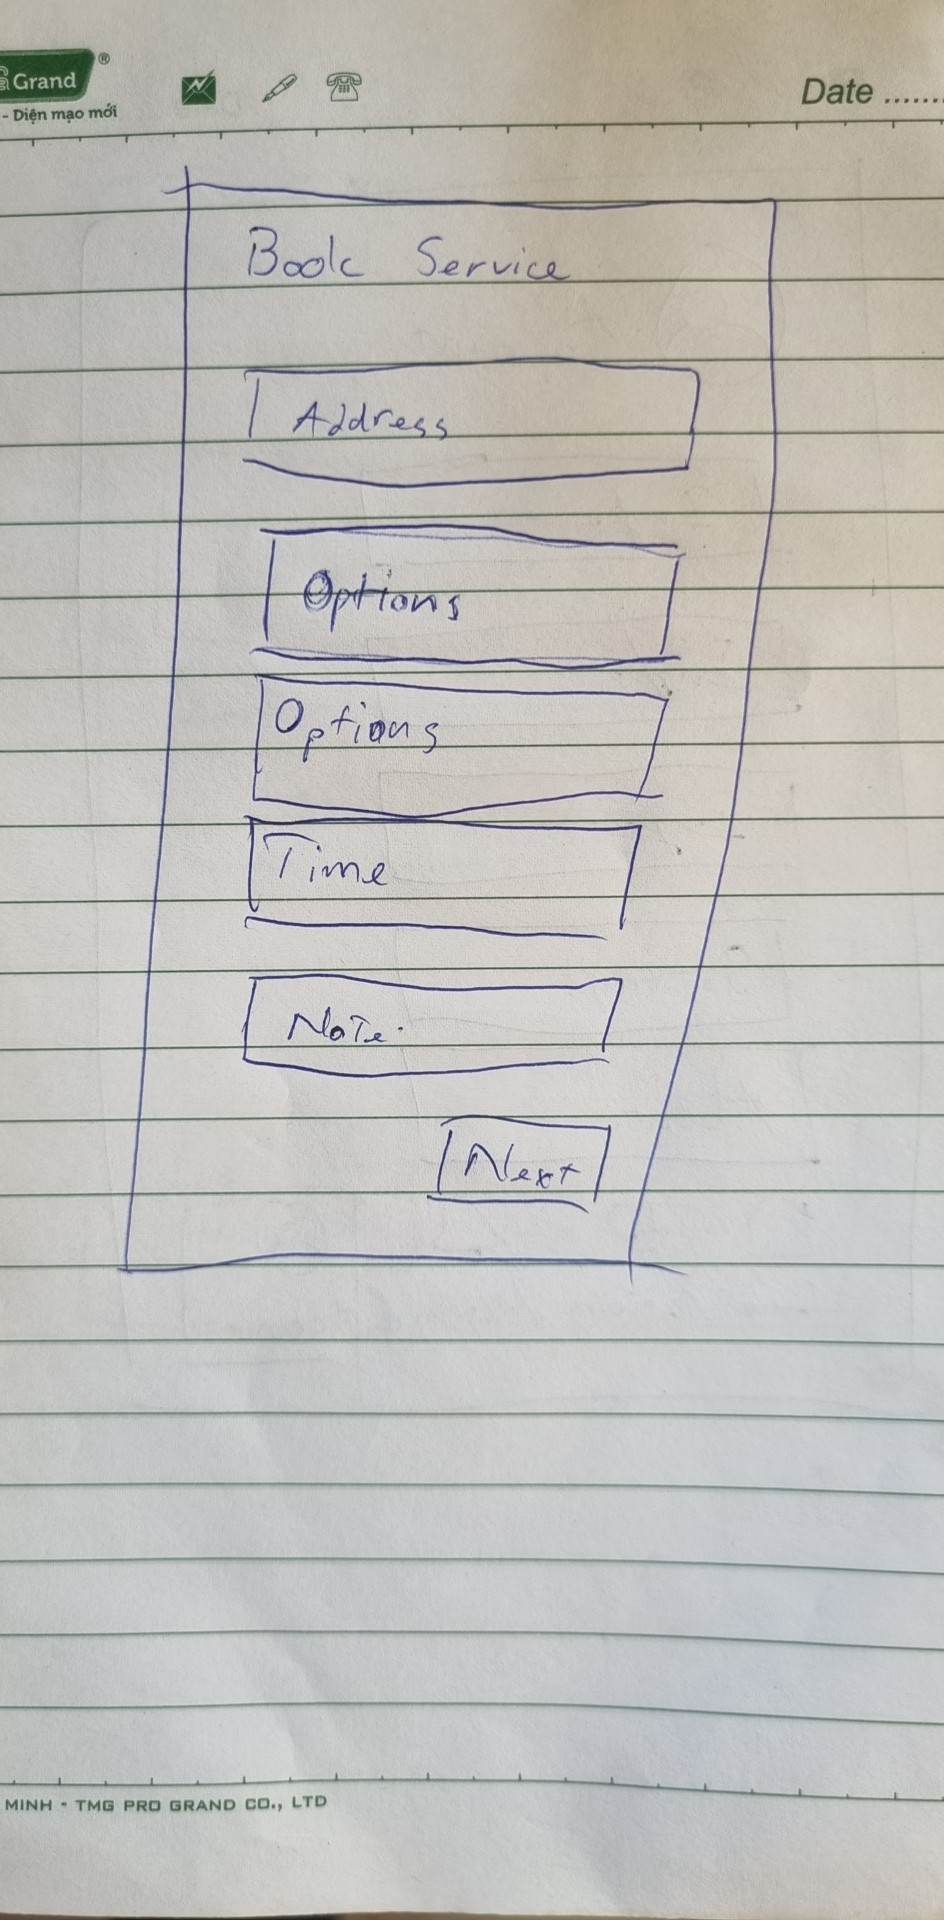 Grand ®
- Diện mạo mới
Date .......
Book Service
Address
Options
Options
Time
Note.
Next
MINH - TMG PRO GRAND CO., LTD